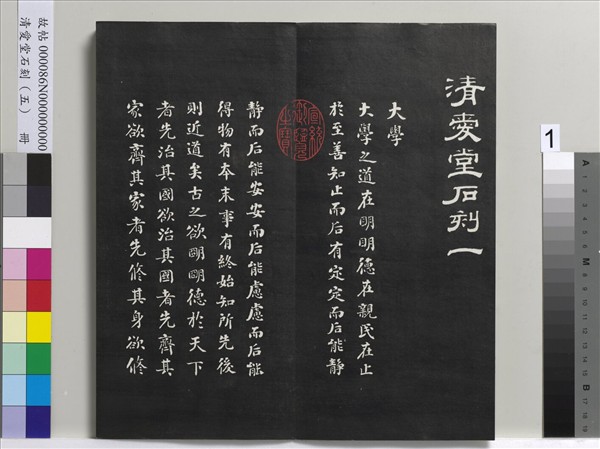 清愛堂石刻一
大學
大學之道在明明德在親民在止
於至善知止而后有定定而后能靜
靜而后能安安而后能慮慮而后能
得物有本末事有終始知所先後
則近道矣古之欲明明德於天下
者先治其國欲治其國者先齊其
家欲齊其家者先修其身欲修
宣統御覽之寶
故帖 000086N000000000
清愛堂石刻（五） 冊
1
A
1
2
3
4
5
6
M
8
9
10
11
12
13
14
15
B
17
18
19